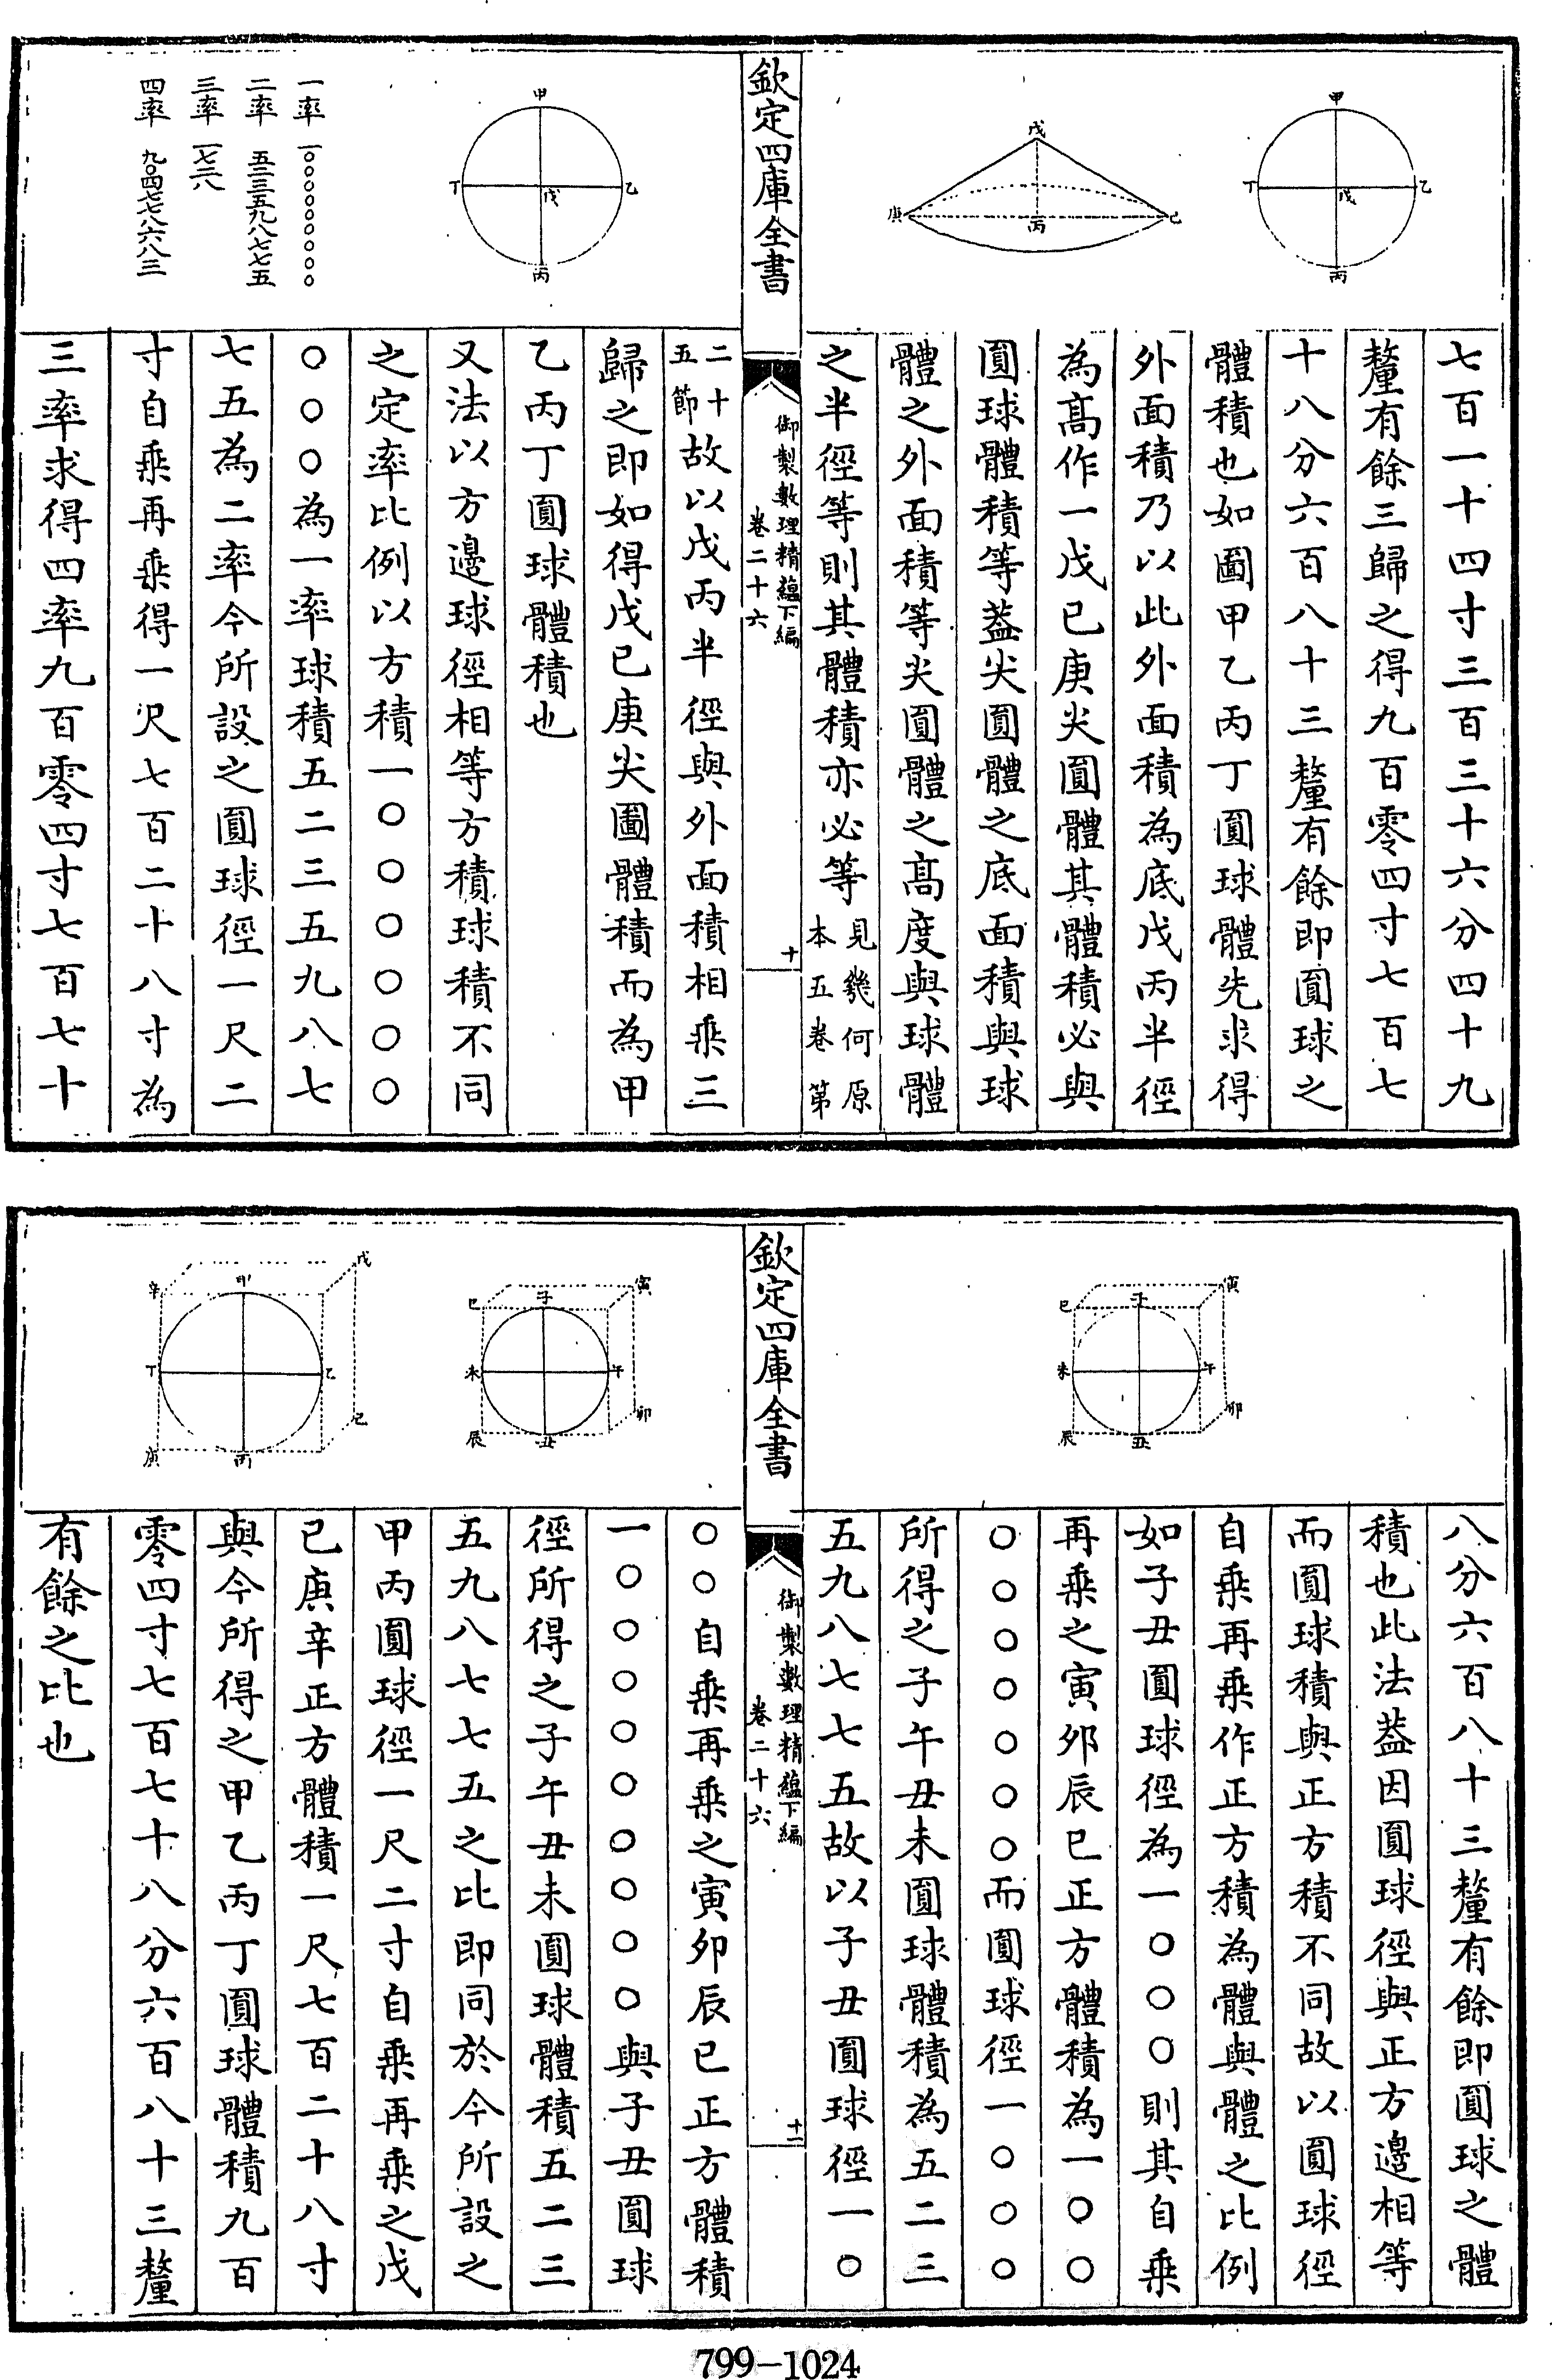 甲
乙
丙
丁
戊
戊
己
庚
丙
七百一十四寸三百三十六分四十九
釐有餘三歸之得九百零四寸七百七
十八分六百八十三釐有餘即圓球之
體積也如圖甲乙丙丁圓球體先求得
外面積乃以此外面積為底戊丙半徑
為髙作一戊已庚尖圓體其體積必與
圓球體積等葢尖圓體之底面積與球
體之外面積等尖圓體之髙度與球體
之半徑等則其體積亦必等見幾何原
本五卷第
欽定四庫全書
御製數理精蘊下編
卷二十六
十
甲
乙
丙
丁
戊
一率 一〇〇〇〇〇〇〇〇〇
二率 五二三五九八七七五
三率 一七二八
四率 九〇四七七八六八三
二十
五節故以戊丙半徑與外面積相乗三
歸之即如得戊已庚尖圓體積而為甲
乙丙丁圓球體積也
又法以方邊球徑相等方積球積不同
之定率比例以方積一〇〇〇〇〇〇
〇〇〇為一率球積五二三五九八七
七五為二率今所設之圓球徑一尺二
寸自乗再乗得一尺七百二十八寸為
三率求得四率九百零四寸七百七十
子
丑
寅
卯
辰
巳
午
未
八分六百八十三釐有餘即圓球之體
積也此法葢因圓球徑與正方邊相等
而圓球積與正方積不同故以圓球徑
自乗再乗作正方積為體與體之比例
如子丑圓球徑為一〇〇〇則其自乗
再乗之寅夘辰巳正方體積為一〇〇
〇〇〇〇〇〇〇而圓球徑一〇〇〇
所得之子午丑未圓球體積為五二三
五九八七七五故以子丑圓球徑一〇
欽定四庫全書
御製數理精蘊下編
卷二十六
十一
子
丑
寅
卯
辰
巳
午
未
甲
乙
丙
丁
戊
己
庚
辛
〇〇自乗再乗之寅夘辰巳正方體積
一〇〇〇〇〇〇〇〇〇與子丑圓球
徑所得之子午丑未圓球體積五二三
五九八七七五之比即同於今所設之
甲丙圓球徑一尺二寸自乗再乗之戊
已庚辛正方體積一尺七百二十八寸
與今所得之甲乙丙丁圓球體積九百
零四寸七百七十八分六百八十三釐
有餘之比也
799-1024